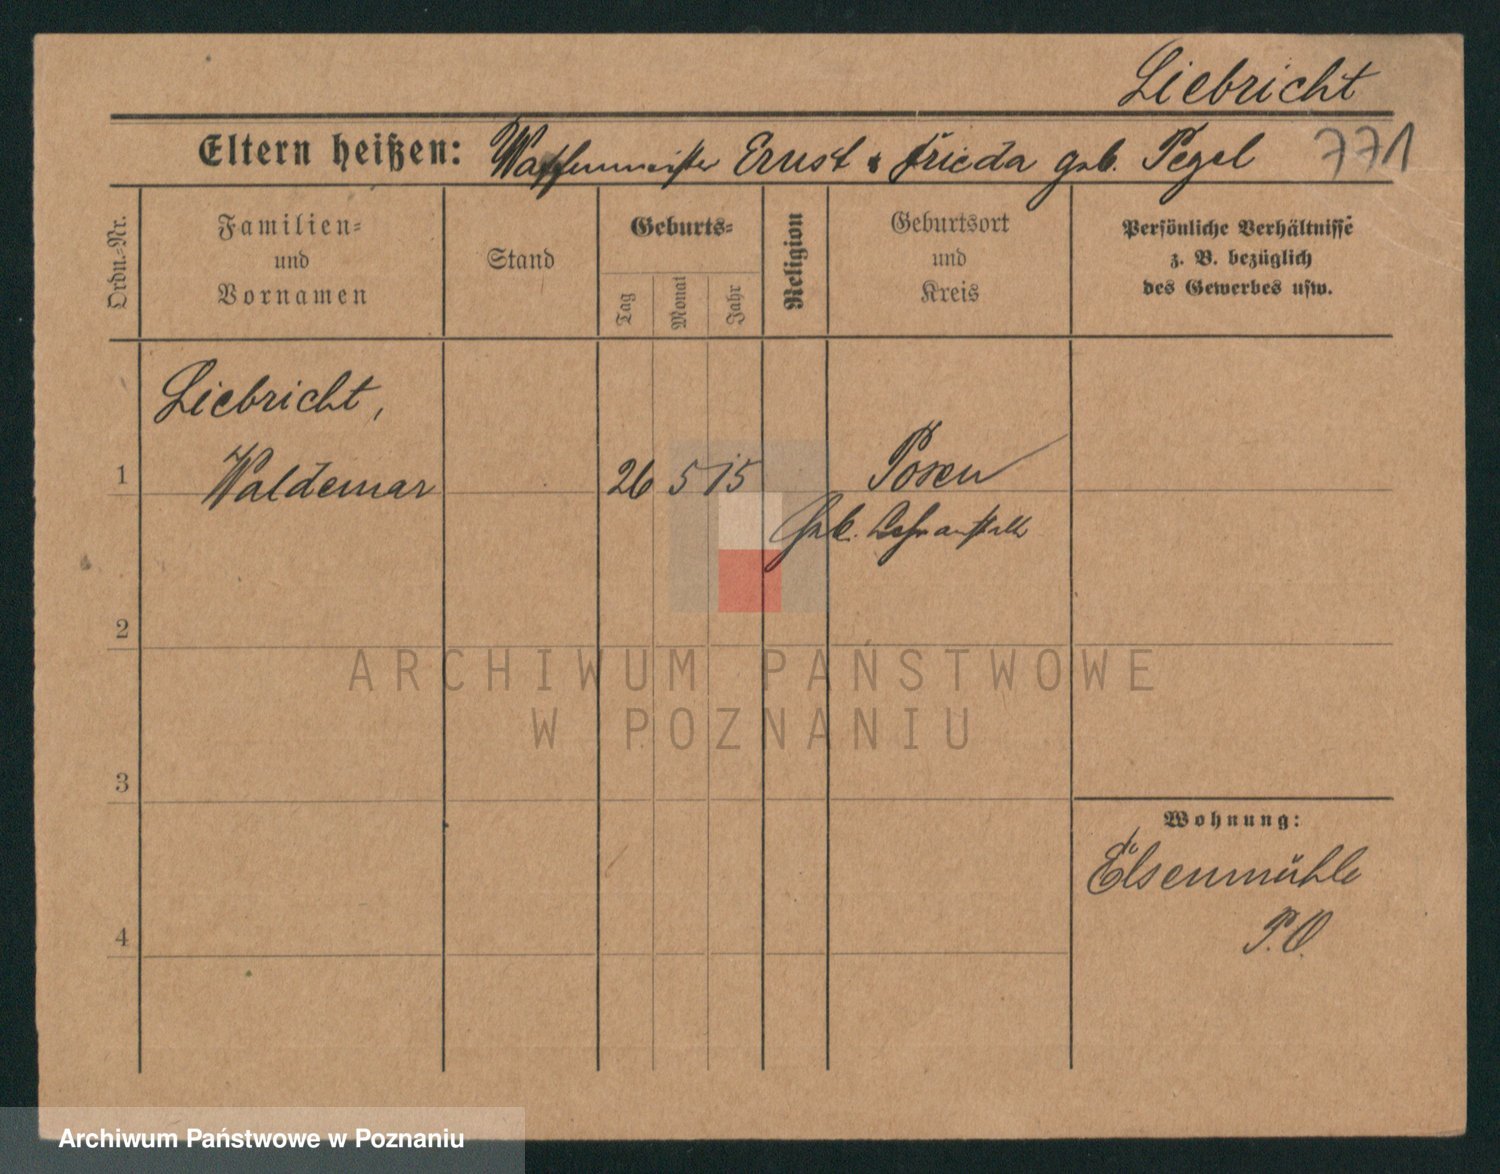 Liebricht
Eltern heißen: Waffenmeister Ernst & Frieda geb. Pegel 771
Ordn.-Nr.
Familien-
und
Vornamen
Stand
Geburts-
Tag
Monat
Jahr
Religion
Geburtsort
und
Kreis
Persönliche Verhältnisse
z. B. bezüglich
des Gewerbes usw.
Liebricht,
1 Waldemar 26 5 15 Posen
Geb.
2
ARCHIWUM PAŃSTWOWE
W POZNANIU
3
Wohnung:
Elsenmühle
P.O.
4
Archiwum Państwowe w Poznaniu